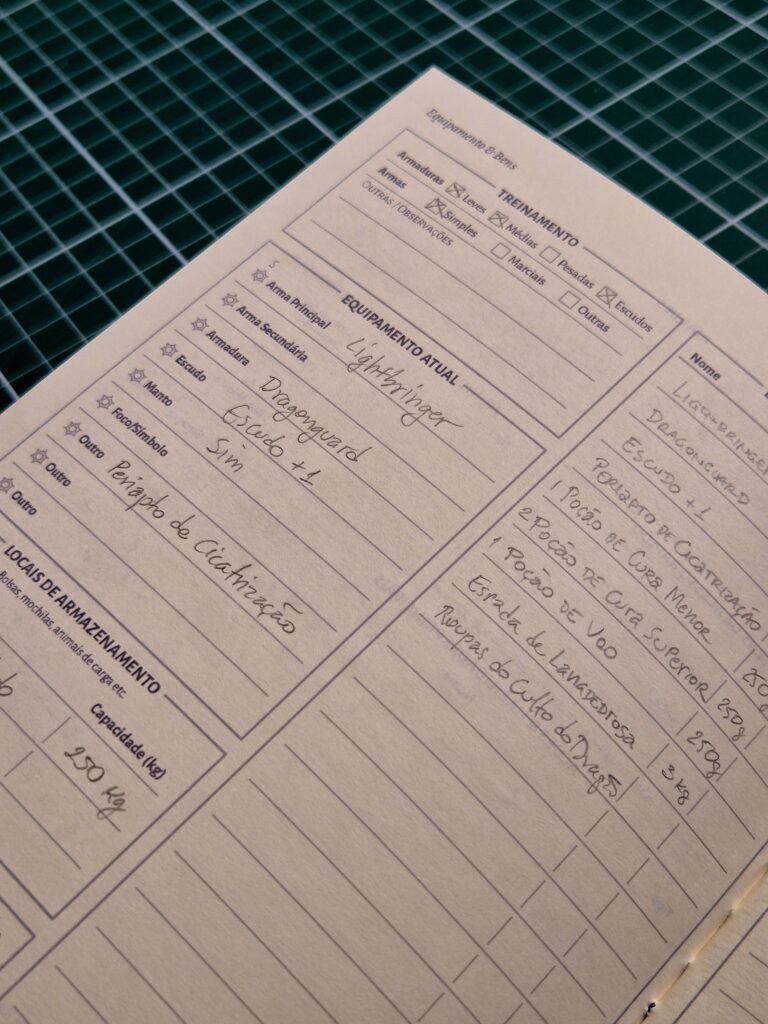 Equipamento & Bens
TREINAMENTO
Armaduras Leves Médias Pesadas Escudos
Armas Simples Marciais Outras
OUTRAS / OBSERVAÇÕES
S EQUIPAMENTO ATUAL
Arma Principal Lightbringer
Arma Secundária
Armadura Dragonguard
Escudo Escudo +1
Manto Sim
Foco/Símbolo
Outro Periapto de Cicatrização
Outro
Outro
LOCAIS DE ARMAZENAMENTO
Bolsas, mochilas, animais de carga etc.
Capacidade (kg)
250 Kg
Nome
LIGHTBRINGER
DRAGONGUARD
ESCUDO +1
PERIAPTO DE CICATRIZAÇÃO
1 POÇÃO DE CURA MENOR 250g
2 POÇÃO DE CURA SUPERIOR 250g
1 POÇÃO DE VOO 250g
Espada de Lanadedrosa 3 kg
Roupas do Culto do Dragão